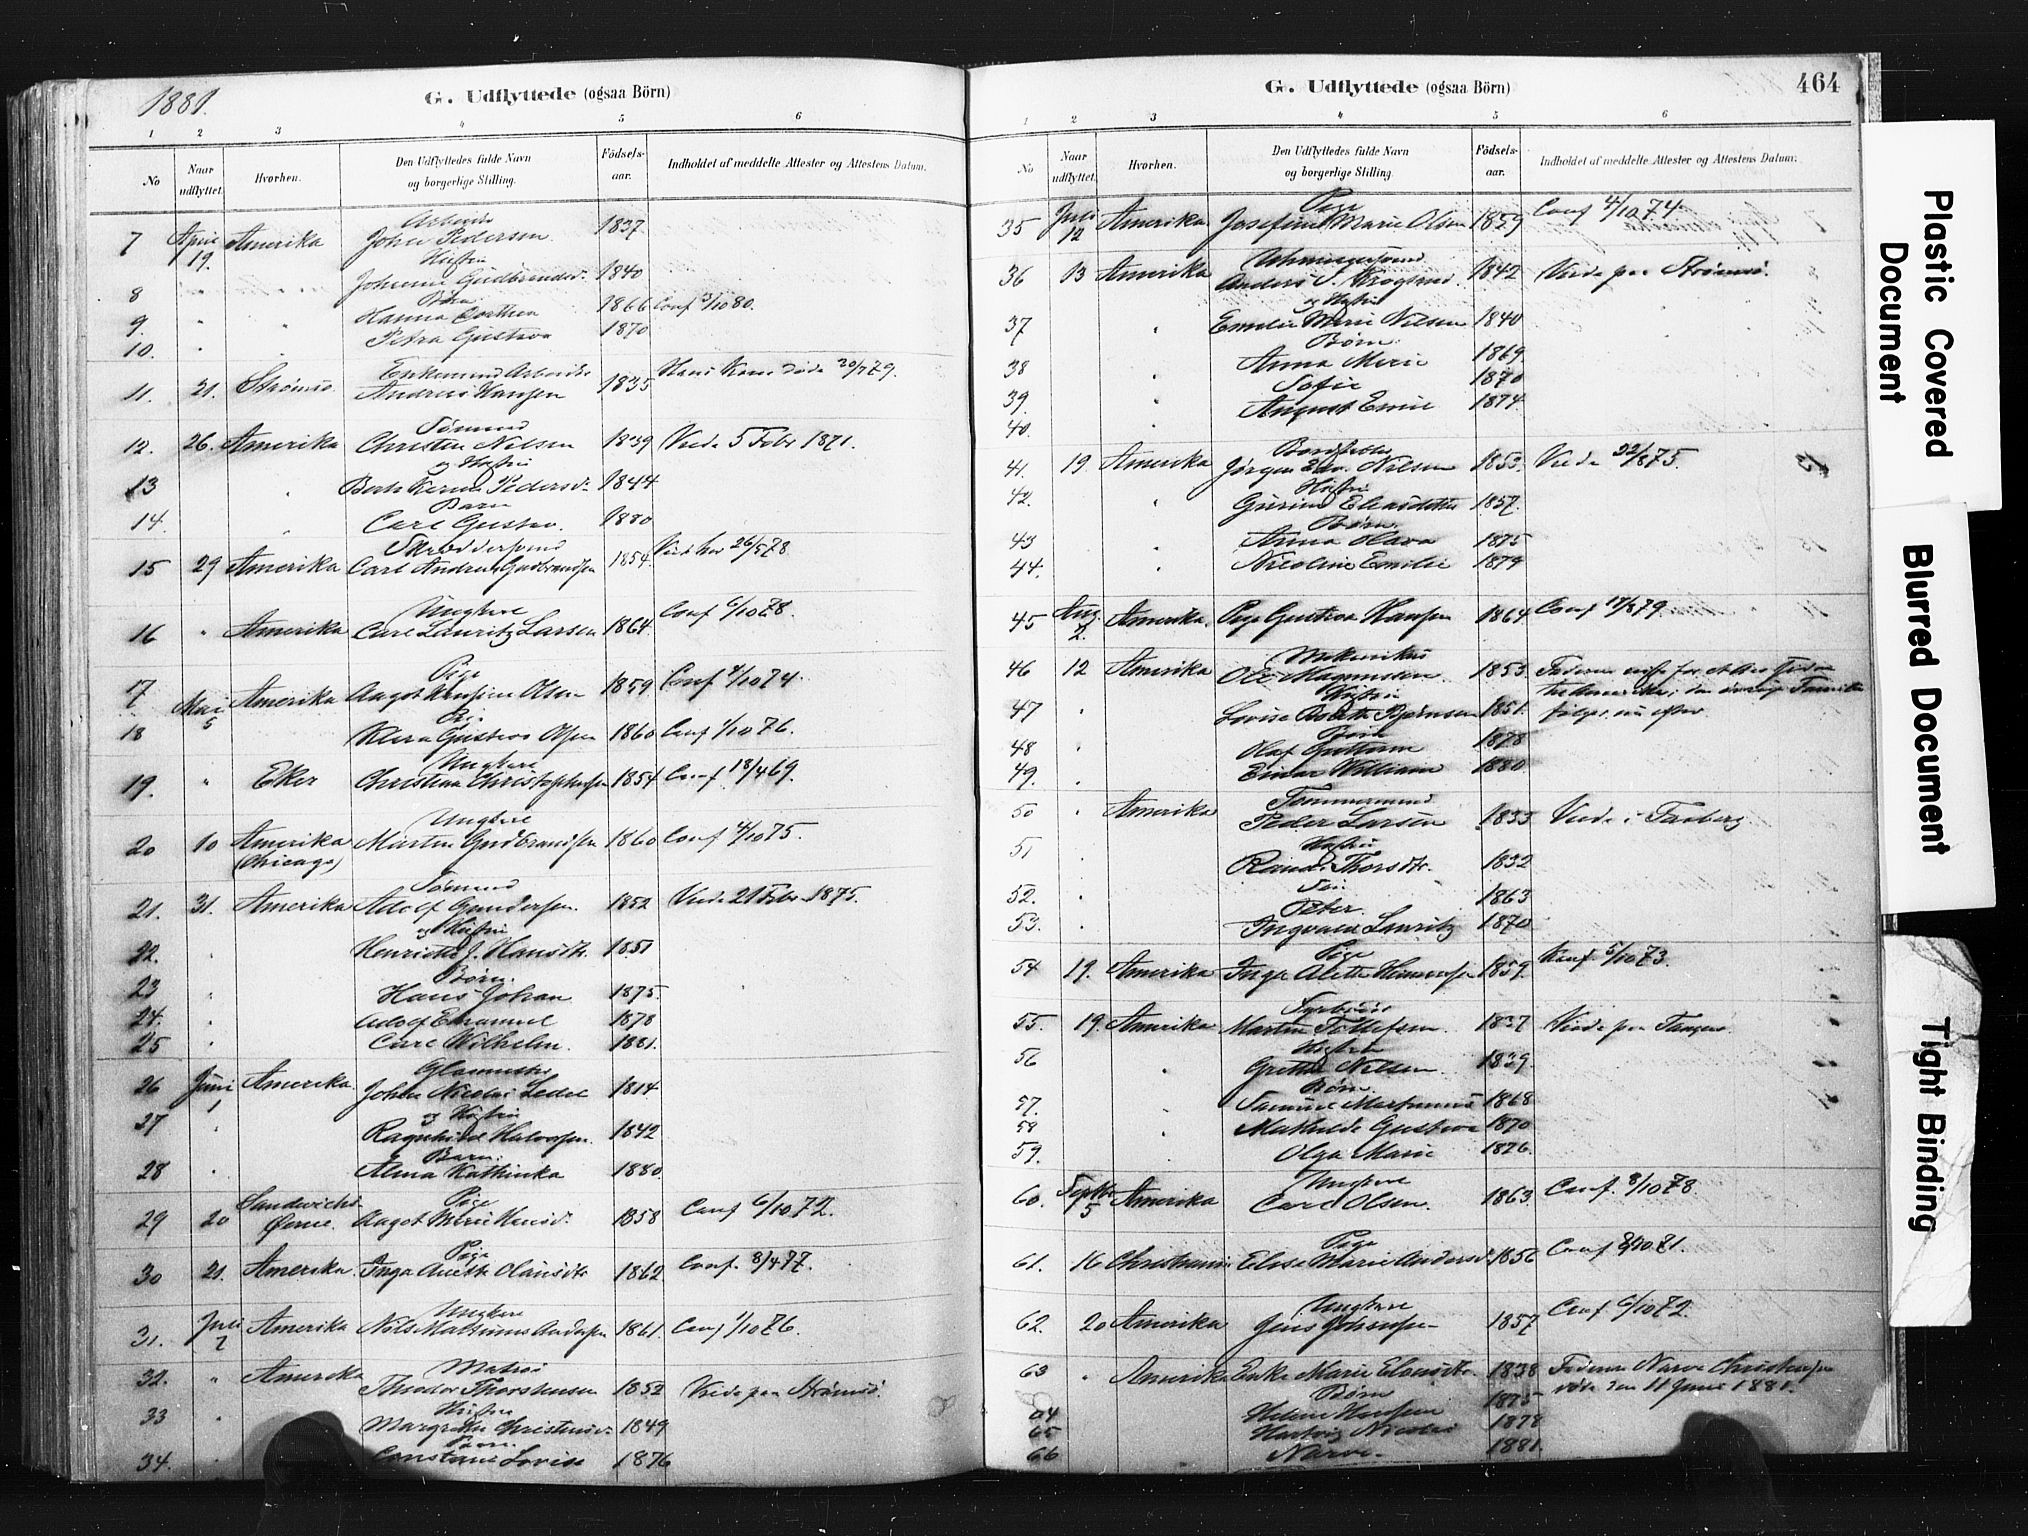 1881.
G. Udflyttede (ogsaa Börn)
1 2 3 4 5 6
No Naar udflyttet. Hvorhen. Den Udflyttedes fulde Navn og borgerlige Stilling. Födsels-aar. Indholdet af meddelte Attester og Attestens Datum.
Arbeider
7 April 19. Amerika Johan Pedersen 1837
Hustru
8 " " Johanne Gudbrandsd. 1840
Börn
9. " " Hanna Dorthea 1866 Conf 3/10 80.
10. " " Petra Gustava 1870
Enkemand Arbeider
11. 21. Strömsö Andreas Hansen 1835 Hans Kone döde 30/7 79.
Sömand
12. 26. Amerika Christen Nilsen 1839 Viede 5 Febr 1871.
og Hustru
13 " Berte Karine Pedersd. 1844
Barn
14. " Carl Gustav. 1880
Skreddersvend
15 29 Amerika Carl Andreas Gudbrandsen 1854 26/5 78
Ungkarl
16 " Amerika Carl Lauritz Larsen 1864. Conf 6/10 78.
Pige
17 Mai 5 Amerika Aagot Olsen 1859. Conf 4/10 74.
18 Klara Gustava Olsen 1860 Conf 1/10 76.
Ungkarl
19. " Eker Christian Christophersen 1854 Conf. 18/4 69.
Ungkarl
20 10 Amerika (Chicago) Martin Gudbrandsen 1860 Conf 4/10 75.
Sömand
21. 31. Amerika Adolf Gundersen. 1852 Viede 21 Febr. 1875.
og Hustru
22. " Henriette J. Hansdtr. 1851
Börn.
23 " Hans Johan 1875.
24. " Adolf Emanuel 1878
25 " Carl Wilhelm. 1881.
26 Juni 1 Amerika. Johan Nicolai 1814
og Hustru
27 " Ragnhild Halvorsen. 1842
Barn.
28 " Alma Kathinka 1880.
Pige
29 20 Sandwichs Öerne. Aagot Marie Hansd. 1858 Conf 6/10 72.
Pige
30 21. Amerika. Inga Anette Olausdtr 1862 Conf. 8/4 77.
Ungkarl
31. Juli 7 Amerika Nils Mathinus Andersen 1861. Conf 1/10 76.
Matros
32. " Amerika Theodor Thorstensen 1852 Viede paa Strömsö.
Hustru
33 " Margrethe Christensd. 1849
Barn.
34. " Constance Lovise 1876
G. Udflyttede (ogsaa Börn)
464
1 2 3 4 5 6
No Naar udflyttet. Hvorhen. Den Udflyttedes fulde Navn og borgerlige Stilling. Födsels-aar. Indholdet af meddelte Attester og Attestens Datum.
Pige
35 Juli 12 Amerika. Josefine Marie Olsen 1859 Conf 4/10 74.
36 13 Amerika Anders 1842 Viede paa Strömsö.
og Hustru
37 " Emilie Marie Nilsen 1840
Börn.
38 " Anna Marie 1869
39 " Sofie 1870
40. " August Emil 1874
41. 19. Amerika Jörgen Edv. Nilsen 1853. Viede 22/8 75.
Hustru
42. " Gurine Eliasdatter 1857.
Börn.
43 " Anna Olava 1875
44. " Nicoline Emilie 1879
45 Aug. 2. Amerika. Pige Gustava Hansen 1864 Conf 17/8 79.
Mekanikus
46 12 Amerika Ole Magnussen. 1853. Faderen reiste for et Aar siden
Hustru
til Amerika; den övrige Familie
47 " Lovise Björnsen 1851. fölger nu efter.
Börn
48 " Olaf 1878
49. " Einar William 1880
Tømmermand
50 " Amerika Peder Larsen 1833 Viede i Faaberg
Hustru
51 " Randi Thorsdtr. 1832
52. " Peter. 1863
53. " Ingvald Lauritz 1870
Pige
54 19. Amerika Inga Alette 1859. Konf 5/10 73.
Fyrböter
55. 19. Amerika. Martin Tollefsen. 1837 Viede paa Tangen.
Hustru
56 " Grethe Nilsen. 1839.
Börn.
57. " Samuel Martinius 1868
58 " Mathilde Gustava 1870
59. " Olga Marie 1876.
Ungkarl
60. Septbr 5 Amerika Carl Olsen. 1863. Conf. 8/10 78.
Pige
61. 16 Christiania Elise Marie Andersd. 1856 Conf
Ungkarl
62. 20 Amerika Jens Johansen 1857 Conf 6/10 72.
63 " Amerika Enke Marie 1838 Faderen Narve Christensen
Börn
döde den 11 Juni 1881.
64 Helene Hansine 1875
65 Hartvig Nicolai 1878
66 Narve. 1881.
Plastic Covered Document
Blurred Document
Tight Binding